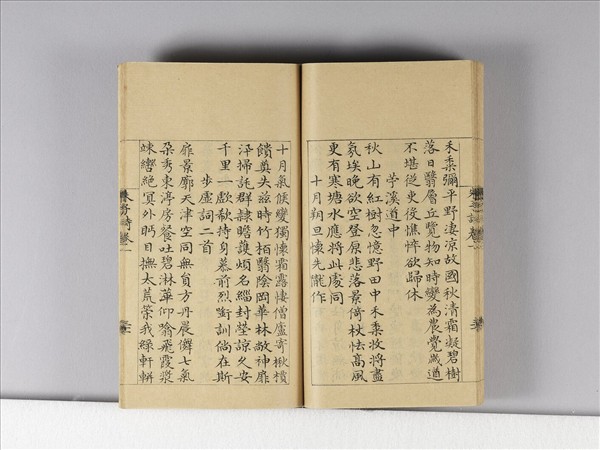 禾黍彌平野淒涼故國秋清霜凝碧樹
落日翳層丘覽物知時變為農覺歲遒
不堪從吏役憔悴欲歸休
芋溪道中
秋山有紅樹忽憶野田中禾黍收將盡
氛埃晚欲空登原悲落景倚杖怯高風
更有寒塘水應將此處同
十月朔旦懷先隴作
十月氣候變獨懷霜露悽僧廬寄楸檟
饋奠失茲時竹柏翳陰岡華林敞神扉
汛掃託群隸瞻護煩名緇封塋諒久安
千里一歔欷持身慕前烈銜訓倘在斯
步虛詞二首
扉景廓天津空同無員方丹晨儛七氣
朶秀東渟房餐吐碧淋華仰噏飛霞漿
竦轡絕冥外眄目撫太荒榮我綠軒軿